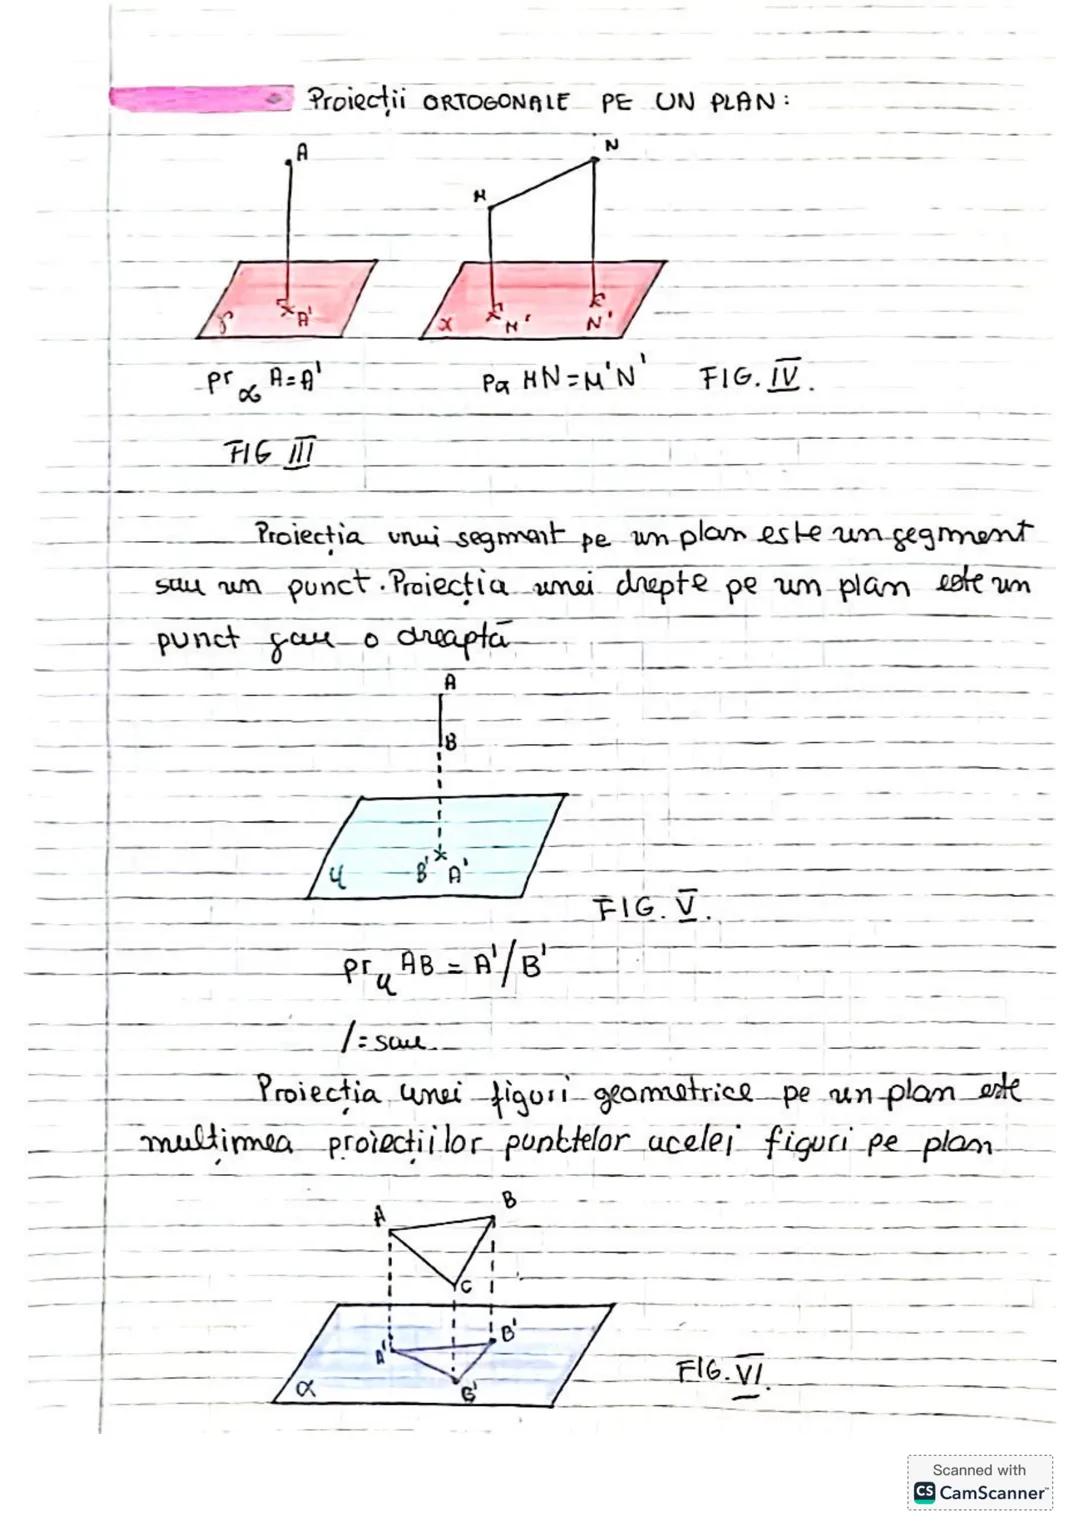 Proiecții ORTOGONALE PE UN PLAN:
A
N
M
γ
A'
α
M'
N'
pr α A=A'
Pα MN=M'N'
FIG. IV.
FIG III
Proiecția unui segment pe un plan este un segment
sau un punct. Proiecția unei drepte pe un plan este un
punct sau o dreaptă
A
B
B' A'
u
FIG. V.
pr u AB = A'/B'
/= sau
Proiecția unei figuri geometrice pe un plan este
mulțimea proiecțiilor punctelor acelei figuri pe plan
A
B
C
A'
B'
α
FIG. VI.
Scanned with
CS CamScanner